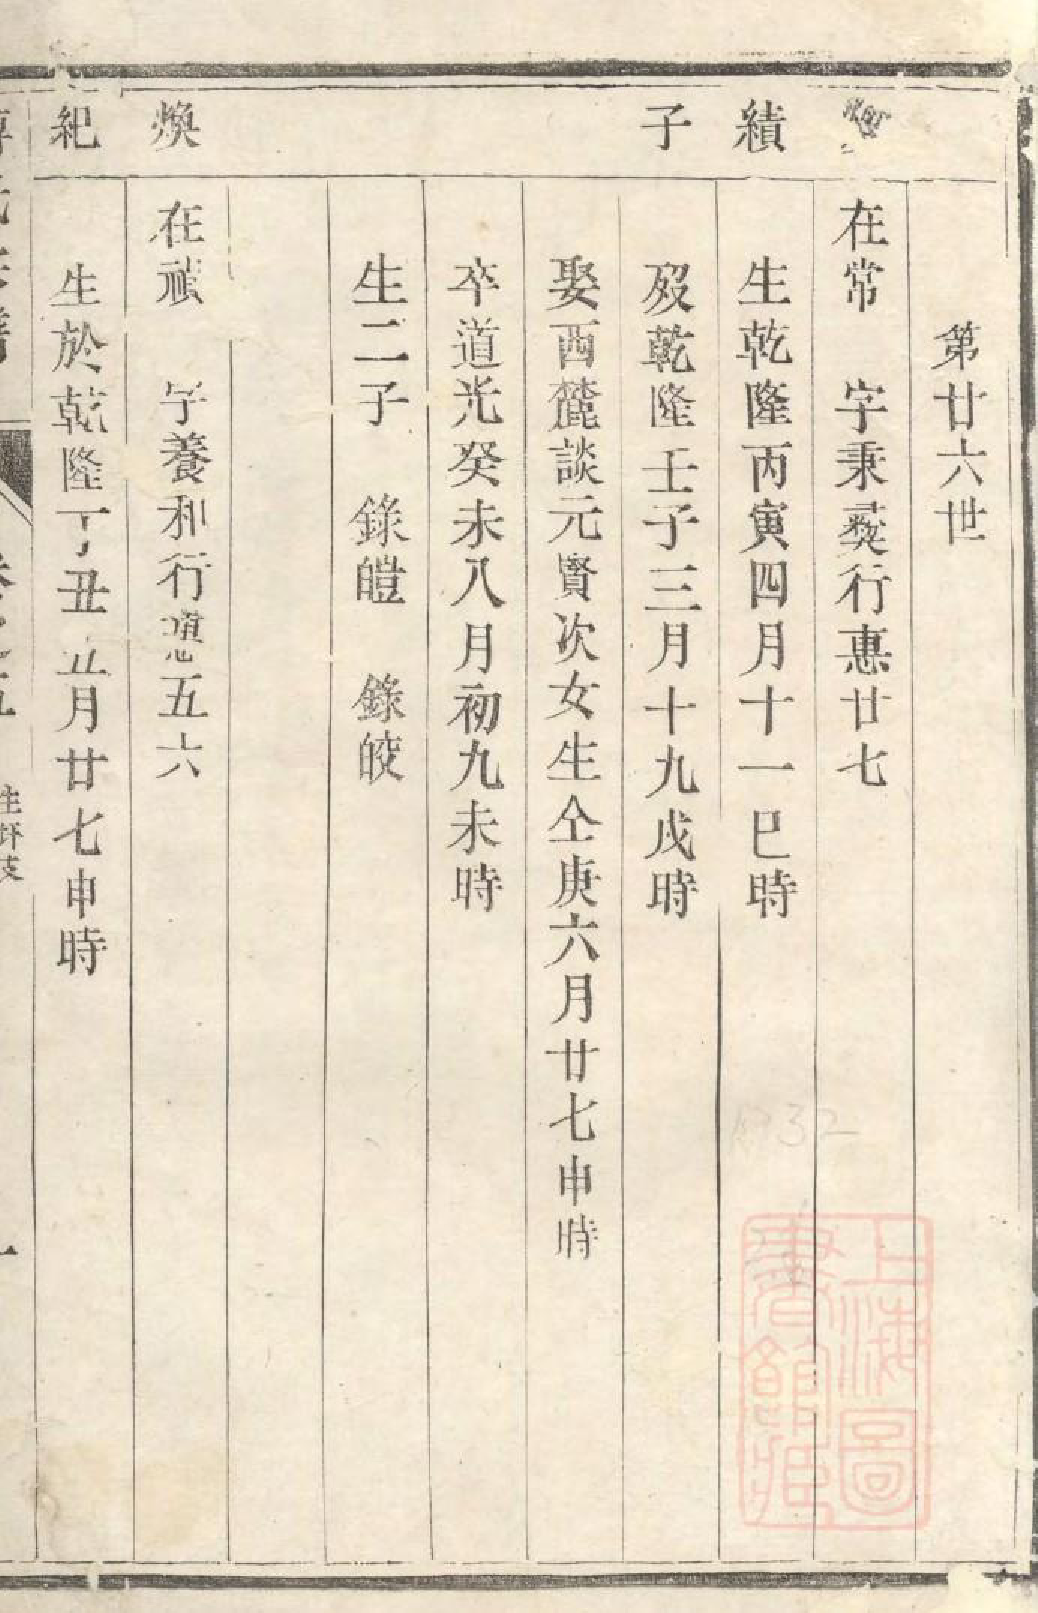 第廿六世
在常 字秉彝行憲廿七
績 生乾隆丙寅四月十一巳時
子 歿乾隆壬子三月十九戌時
娶西麓談元賢次女生仝庚六月廿七申時
卒道光癸未八月初九未時
生二子 錄皚 錄皎
煥 在 字養和行憲五六
紀 生於乾隆丁丑五月廿七申時
上海圖書館藏